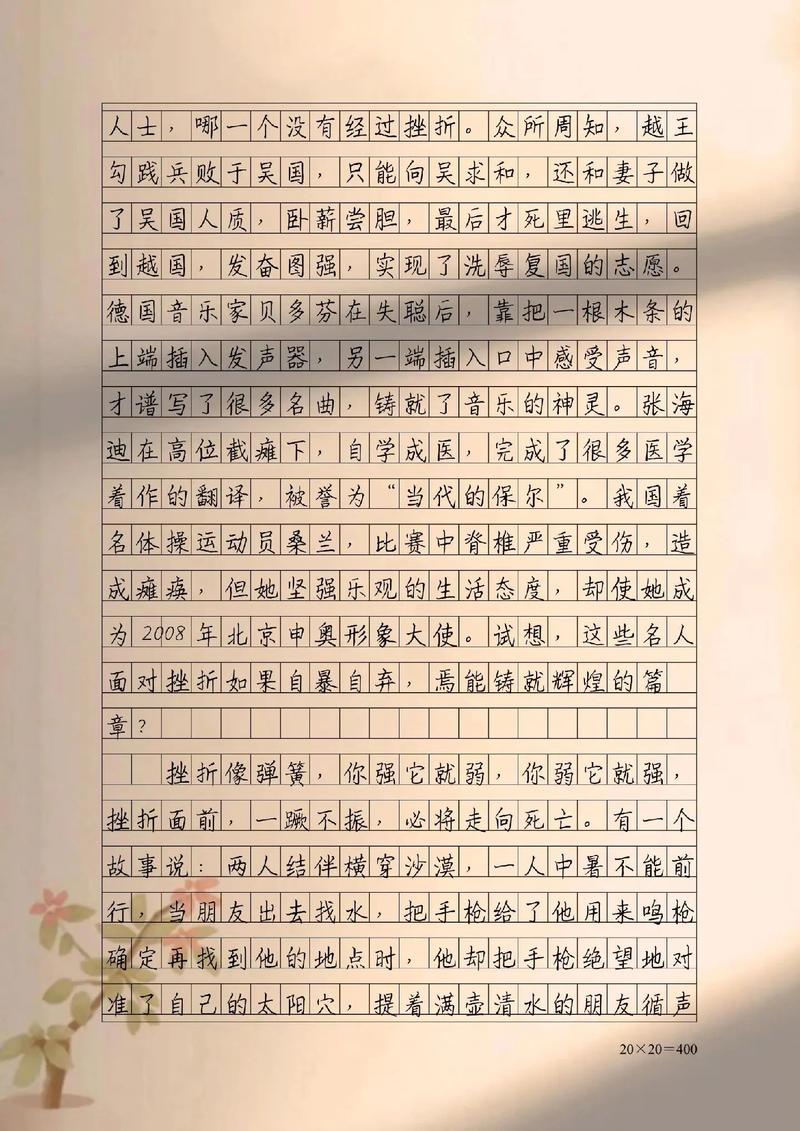 人士，哪一个没有经过挫折。众所周知，越王
勾践兵败于吴国，只能向吴求和，还和妻子做
了吴国人质，卧薪尝胆，最后才死里逃生，回
到越国，发奋图强，实现了洗辱复国的志愿。
德国音乐家贝多芬在失聪后，靠把一根木条的
上端插入发声器，另一端插入口中感受声音，
才谱写了很多名曲，铸就了音乐的神灵。张海
迪在高位截瘫下，自学成医，完成了很多医学
着作的翻译，被誉为“当代的保尔”。我国着
名体操运动员桑兰，比赛中脊椎严重受伤，造
成瘫痪，但她坚强乐观的生活态度，却使她成
为2008年北京申奥形象大使。试想，这些名人
面对挫折如果自暴自弃，焉能铸就辉煌的篇
章？
挫折像弹簧，你强它就弱，你弱它就强，
挫折面前，一蹶不振，必将走向死亡。有一个
故事说：两人结伴横穿沙漠，一人中暑不能前
行，当朋友出去找水，把手枪给了他用来鸣枪
确定再找到他的地点时，他却把手枪绝望地对
准了自己的太阳穴，提着满壶清水的朋友循声
20×20=400